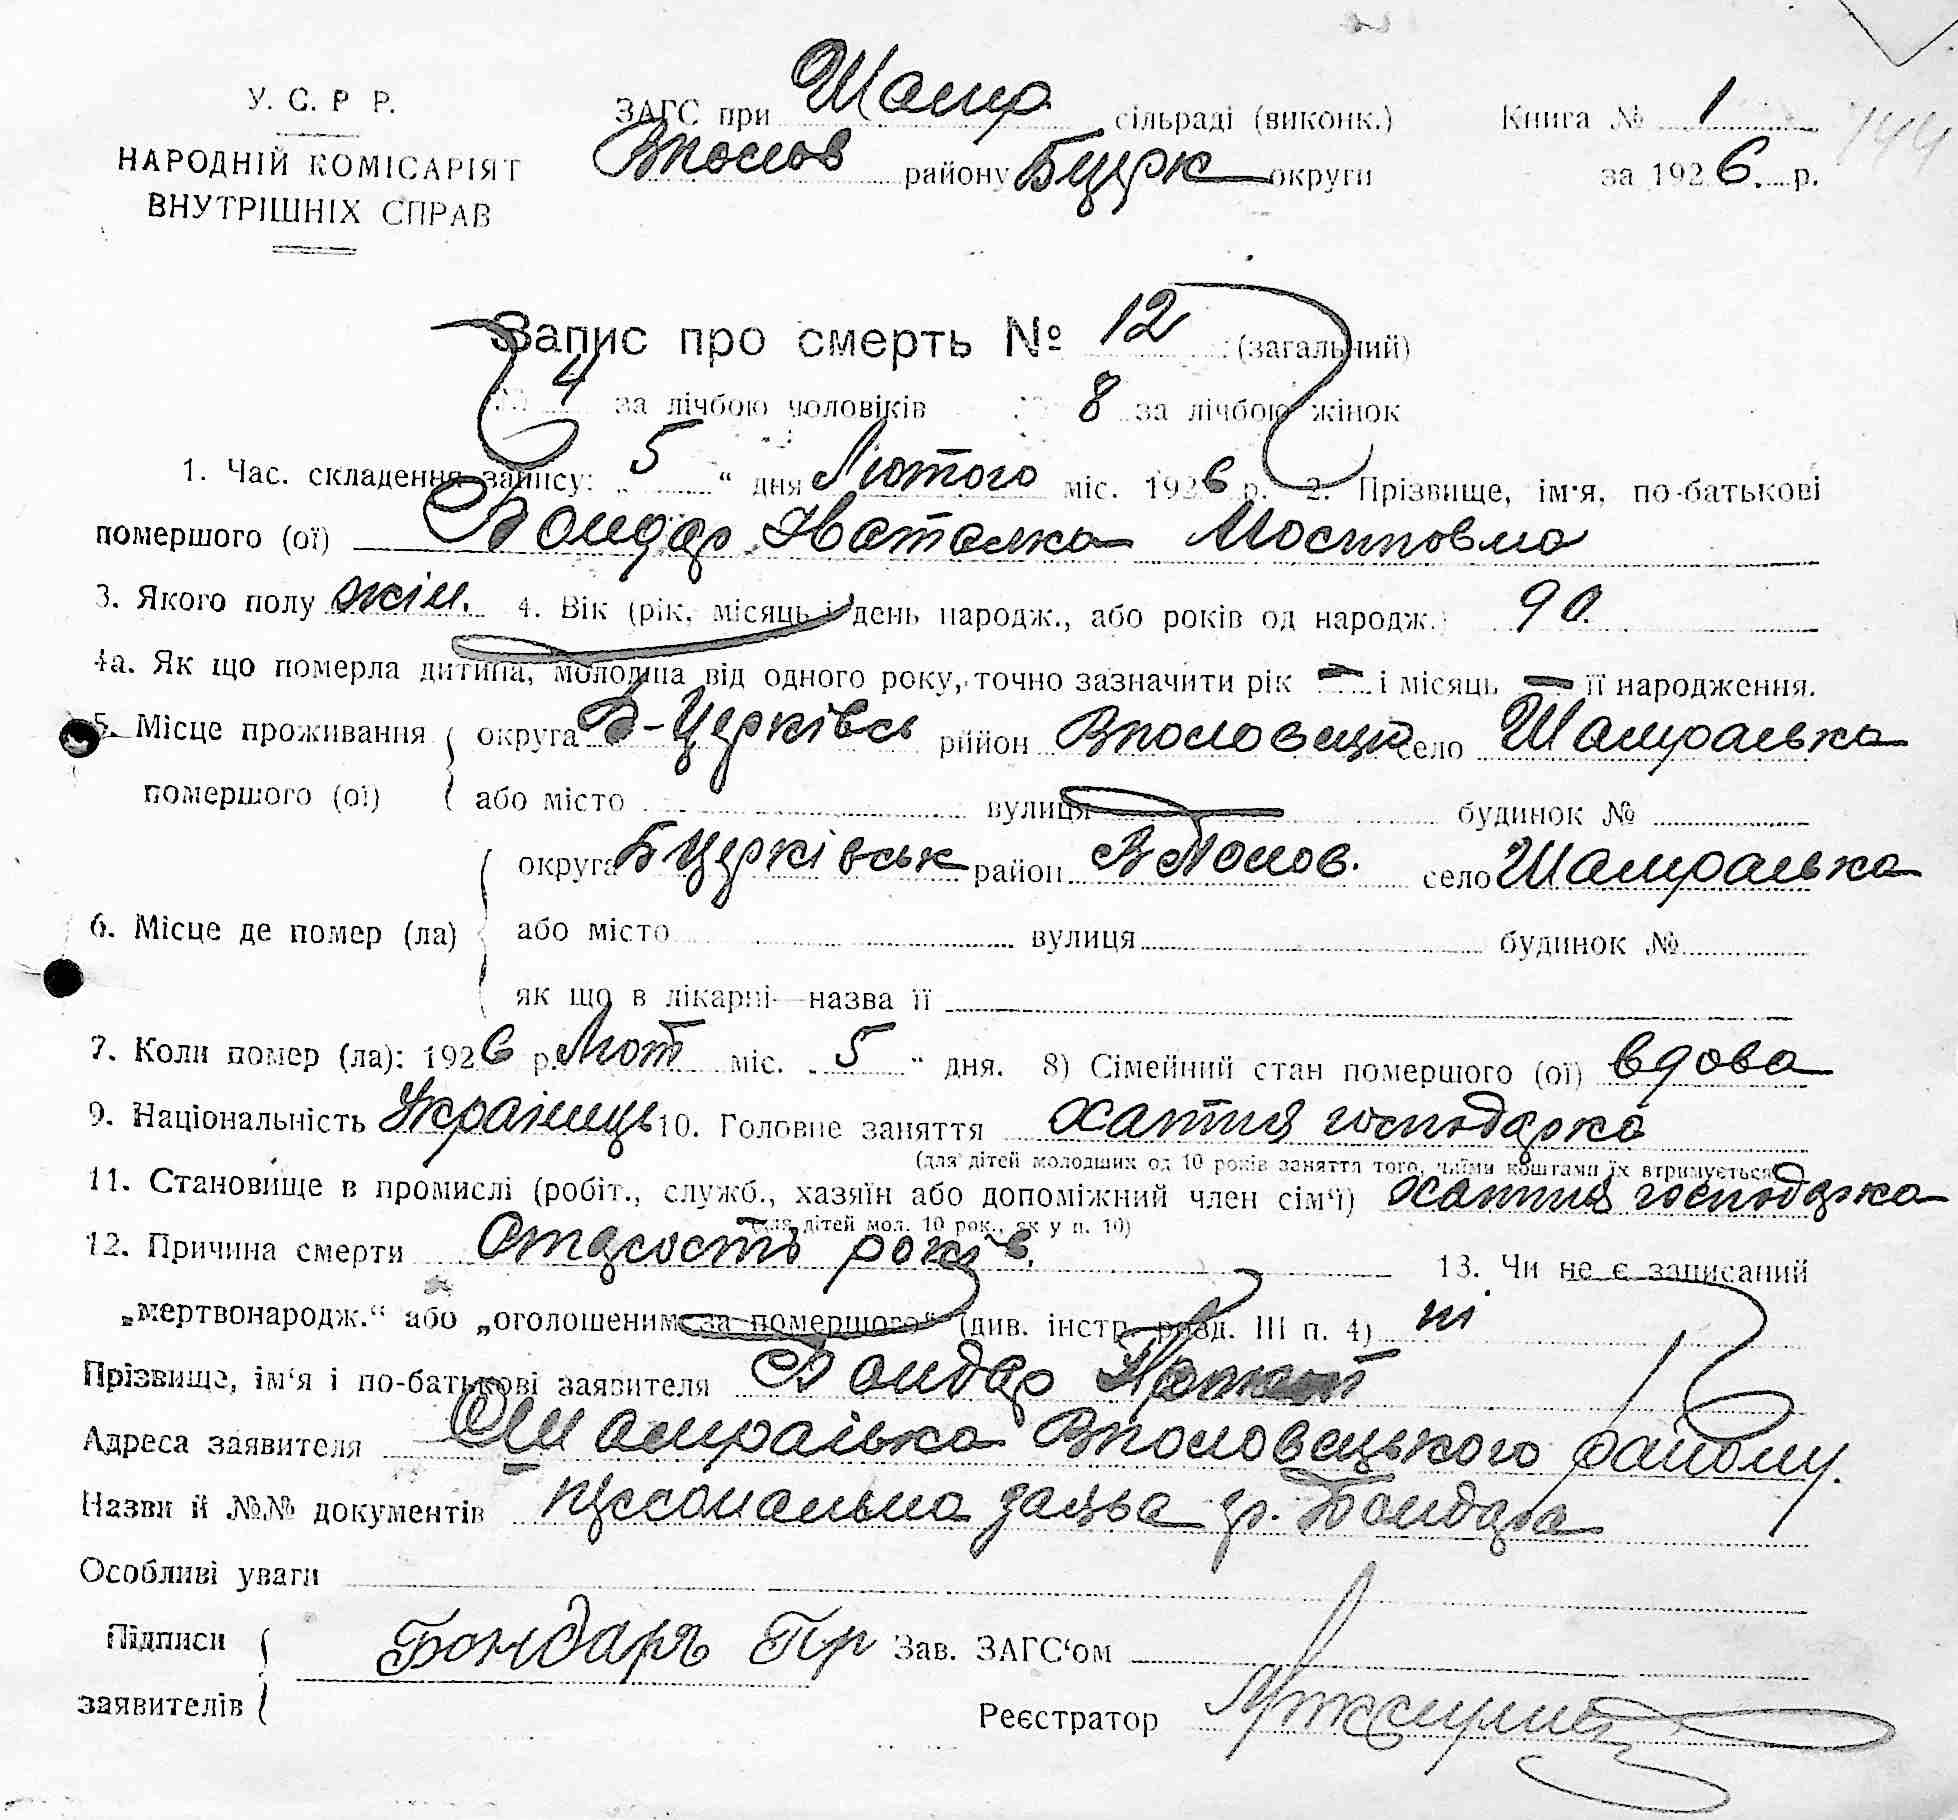 У. С. Р Р.
НАРОДНІЙ КОМІСАРІЯТ
ВНУТРІШНІХ СПРАВ
ЗАГС при Шамр сільраді (виконк.)
Вполов району Бцерк округи
Книга № 1
за 1926. р.
144
Запис про смерть № 12 (загальний)
4 за лічбою чоловіків 8 за лічбою жінок
1. Час. складення запису: „ 5 “ дня Лютого міс. 1926 р. 2. Прізвище, ім'я, по-батькові
помершого (ої) Бондар Наталка Йосиповна
3. Якого полу жін. 4. Вік (рік, місяць і день народж., або років од народж.) 90.
4а. Як що померла дитина, молодша від одного року, точно зазначити рік — і місяць — її народження.
5. Місце проживання округа Б-Церківсь район Вполовецьк село Шамраівка
помершого (ої) або місто вулиця будинок №
округа Бцерківськ район ВПолов. село Шамраівка
6. Місце де помер (ла) або місто вулиця будинок №
як що в лікарні—назва її
7. Коли помер (ла): 1926 р. Лют міс. „ 5 “ дня. 8) Сімейний стан помершого (ої) вдова
9. Національність Українець 10. Головне заняття хатня господарка
(для дітей молодших од 10 років заняття того, чиїми коштами їх втримується)
11. Становище в промислі (робіт., служб., хазяїн або допоміжний член сім'ї) хатня господарка
(для дітей мол. 10 рок., як у п. 10)
12. Причина смерти Старость років. 13. Чи не є записаний
„мертвонародж.“ або „оголошеним за помершого“ (див. інстр. розд. III п. 4) ні
Прізвище, ім'я і по-батькові заявителя Бондар
Адреса заявителя Шамраівка Вполовецького району.
Назви й №№ документів персональна заява гр. Бондара
Особливі уваги
Підписи Бондарь Пр Зав. ЗАГС'ом
заявителів Реєстратор